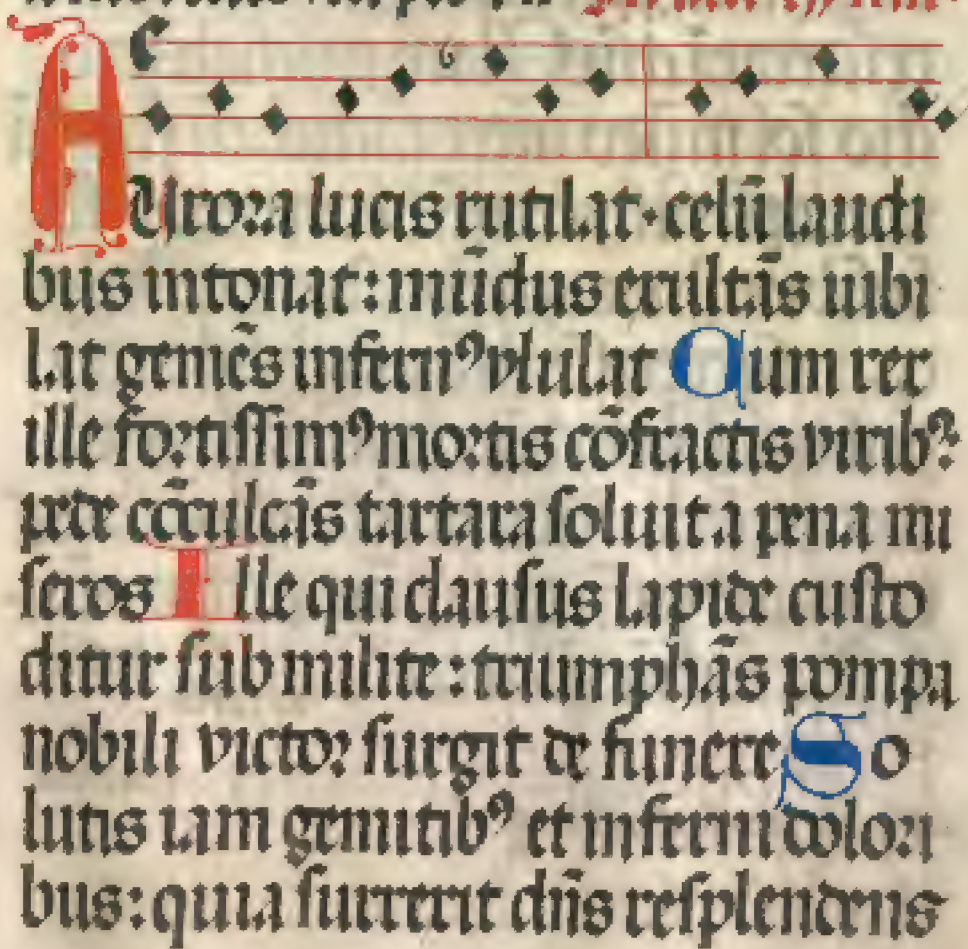 AUrora lucis rutilat· celū laudi
bus intonat: mūdus exultās iubi
lat gemēs infernꝰ ululat Qum rex
ille fortissimꝰ mortis cōfractis viribꝰ:
pede cōculcās tartara soluit a pena mi
seros Ille qui clausus lapide custo
ditur sub milite: triumphās pompa
nobili victor surgit de funere So
lutis iam gemitibꝰ et inferni dolori
bus: quia surrexit dn̄s resplendens